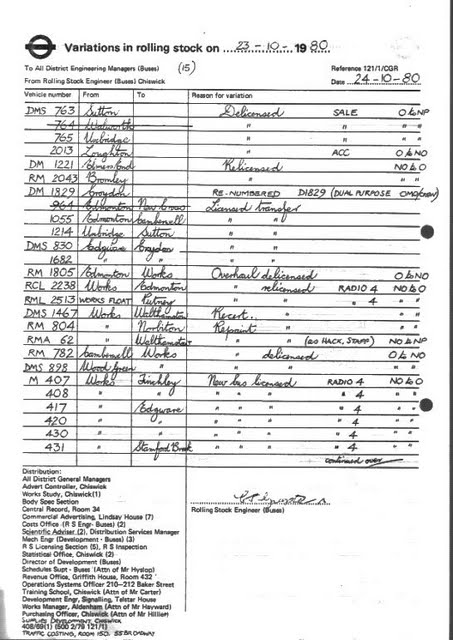 Variations in rolling stock on 23-10-1980
To All District Engineering Managers (Buses) (15) Reference 121/1/CGR
From Rolling Stock Engineer (Buses) Chiswick Date 24-10-80
Vehicle number From To Reason for variation
DMS 763 Sutton Delicensed SALE O to NP
764 Walworth " " "
765 Uxbridge " " "
2013 Loughton " ACC O to NO
DM 1221 Elmers End Relicensed NO to O
RM 2043 Bromley " " "
DM 1829 Croydon RE-NUMBERED D1829 (DUAL PURPOSE
964 Edmonton New Cross Licensed transfer
1055 Edmonton Camberwell " "
1214 Uxbridge Sutton " "
DMS 830 Edgware Croydon " "
1682 " " " "
RM 1805 Edmonton Works Overhaul delicensed O to NO
RCL 2238 Works Edmonton " relicensed RADIO 4 NO to O
RML 2513 WORKS FLOAT Putney " " " 4 " "
DMS 1467 Works Walthamstow Recert. " " "
RM 804 " Norbiton Repaint " " "
RMA 62 " Walthamstow " " (as HACK, STAFF) NO to NP
RM 782 Camberwell Works " delicensed O to NO
DMS 898 Wood Green " " " " "
M 407 Works Finchley New bus licensed RADIO 4 NO to O
408 " " " " " " 4 " "
417 " Edgware " " " " 4 " "
420 " " " " " " 4 " "
430 " " " " " " 4 " "
431 " Stamford Brook " " " " 4 " "
continued over
Distribution:
All District General Managers
Advert Controller, Chiswick
Works Study, Chiswick (1)
Body Spec Section
Central Record, Room 34
Commercial Advertising, Lindsay House (7)
Costs Office (R S Engr- Buses) (2)
Scientific Adviser (2), Distribution Services Manager
Mech Engr (Development - Buses) (3)
R S Licensing Section (5), R S Inspection
Statistical Office, Chiswick (2)
Director of Development (Buses)
Schedules Supt - Buses (Attn of Mr Hyslop)
Revenue Office, Griffith House, Room 432
Operations Systems Officer 210-212 Baker Street
Training School, Chiswick (Attn of Mr Carter)
Development Engr, Signalling, Telstar House
Works Manager, Aldenham (Attn of Mr Hayward)
Purchasing Officer, Chiswick (Attn of Mr Hillier)
SUPPLIES DEVELOPMENT, CHISWICK
408/69(1) (500 2/79 121/1)
TRAFFIC COSTING, ROOM 150. 55 BROADWAY
Rolling Stock Engineer (Buses)